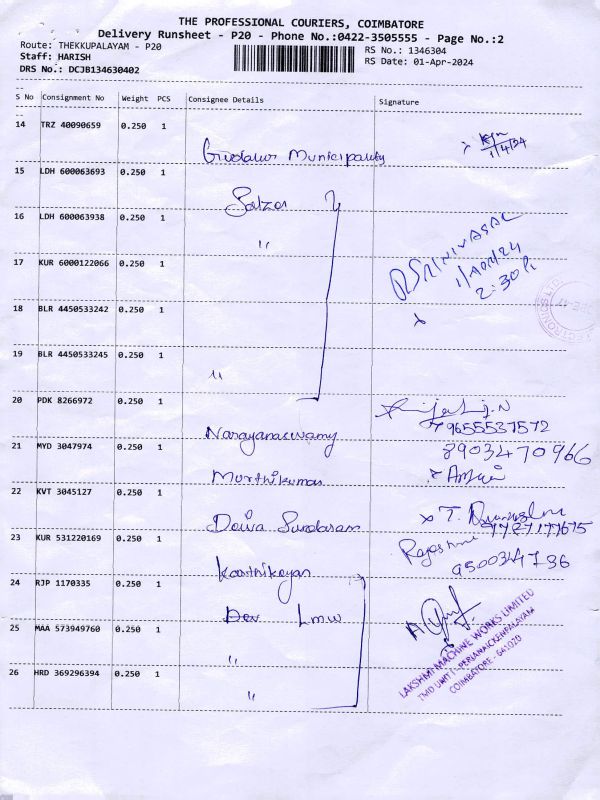 THE PROFESSIONAL COURIERS, COIMBATORE
Delivery Runsheet - P20 - Phone No.:0422-3505555 - Page No.:2
Route: THEKKUPALAYAM - P20
RS No.: 1346304
Staff: HARISH
RS Date: 01-Apr-2024
DRS No.: DCJB134630402
S No Consignment No Weight PCS Consignee Details Signature
14 TRZ 40090659 0.250 1
1/4/24
Municipality
15 LDH 600063693 0.250 1
Salzer
16 LDH 600063938 0.250 1
"
R SRINIVASAN
1/April/24
2:30
17 KUR 6000122066 0.250 1
18 BLR 4450533242 0.250 1
19 BLR 4450533245 0.250 1
"
20 PDK 8266972 0.250 1
9655537572
Narayanaswamy
21 MYD 3047974 0.250 1
8903470966
Murthikumar
22 KVT 3045127 0.250 1
Daiva Sundaram
23 KUR 531220169 0.250 1
Karthikeyan
9500034736
24 RJP 1170335 0.250 1
Dev Lmw
25 MAA 573949760 0.250 1
"
26 HRD 369296394 0.250 1
"
LAKSHMI MACHINE WORKS LIMITED
TMD UNIT I - PERIANAICKENPALAYAM
COIMBATORE - 641020